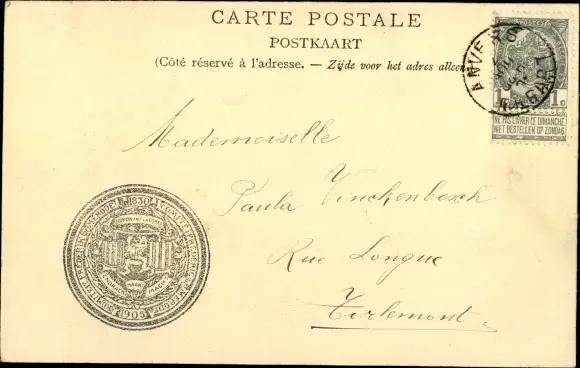 CARTE POSTALE
POSTKAART
(Côté réservé à l'adresse. — Zijde voor het adres alleen
ANVERS
POSTES
1 1c
NE PAS LIVRER LE DIMANCHE
NIET BESTELLEN OP ZONDAG
Mademoiselle
Paula Vinckenbosch
Rue Longue
Tirlemont
1830
1905